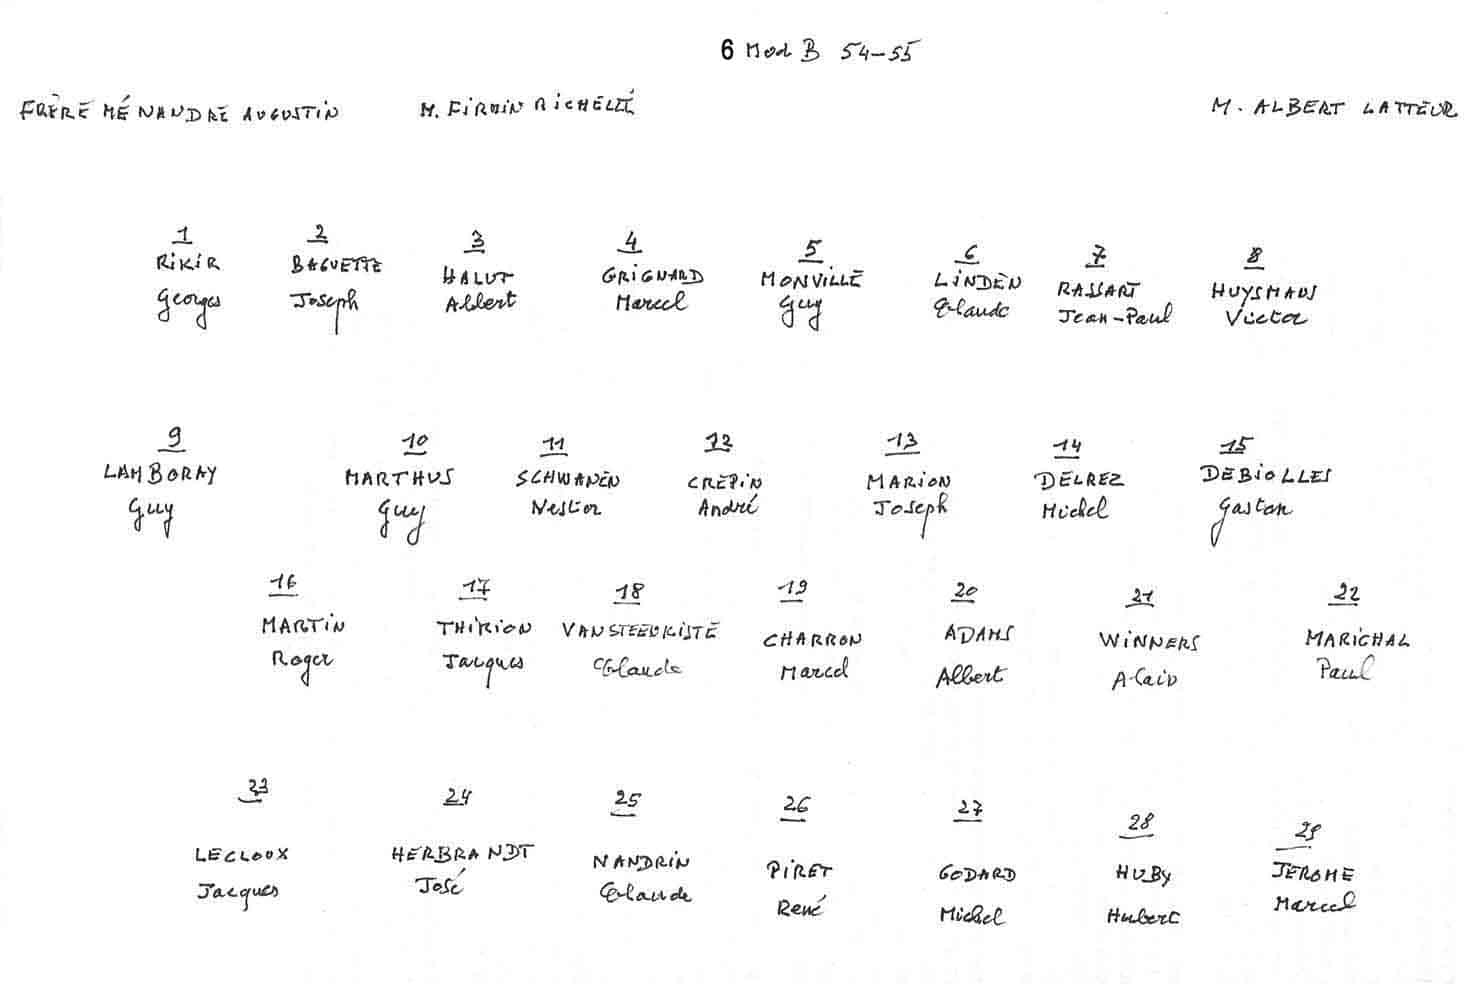 6 Mod B 54-55
FRÈRE MÉNANDRE AUGUSTIN M. FIRMIN RICHELLÉ M. ALBERT LATTEUR
1 2 3 4 5 6 7 8
RIKIR BAGUETTE HALUT GRIGNARD MONVILLE LINDEN RASSART HUYSMANS
Georges Joseph Albert Marcel Guy Claude Jean-Paul Victor
9 10 11 12 13 14 15
LAMBORAY MARTHUS SCHWANEN CREPIN MARION DELREZ DEBIOLLES
Guy Guy Nestor André Joseph Michel Gaston
16 17 18 19 20 21 22
MARTIN THIRION VANSTEENKISTE CHARRON ADAMS WINNERS MARICHAL
Roger Jacques Claude Marcel Albert Alain Paul
23 24 25 26 27 28 29
LECLOUX HERBRANDT NANDRIN PIRET GODARD HUBY JEROME
Jacques José Claude René Michel Hubert Marcel